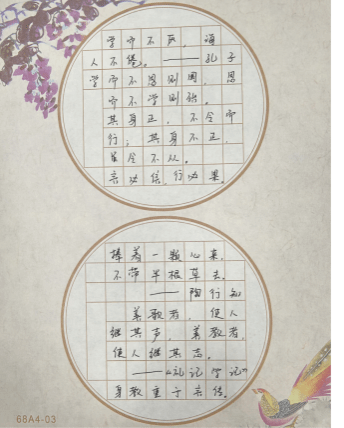 学而不厌，诲
人不倦。——孔子
学而不思则罔，思
而不学则殆。
其身正，不令而
行；其身不正，
虽令不从。
言必信，行必果。
捧着一颗心来，
不带半根草去。
——陶行知
善歌者，使人
继其声，善教者，
使人继其志。
——《礼记·学记》
身教重于言传。
68A4-03